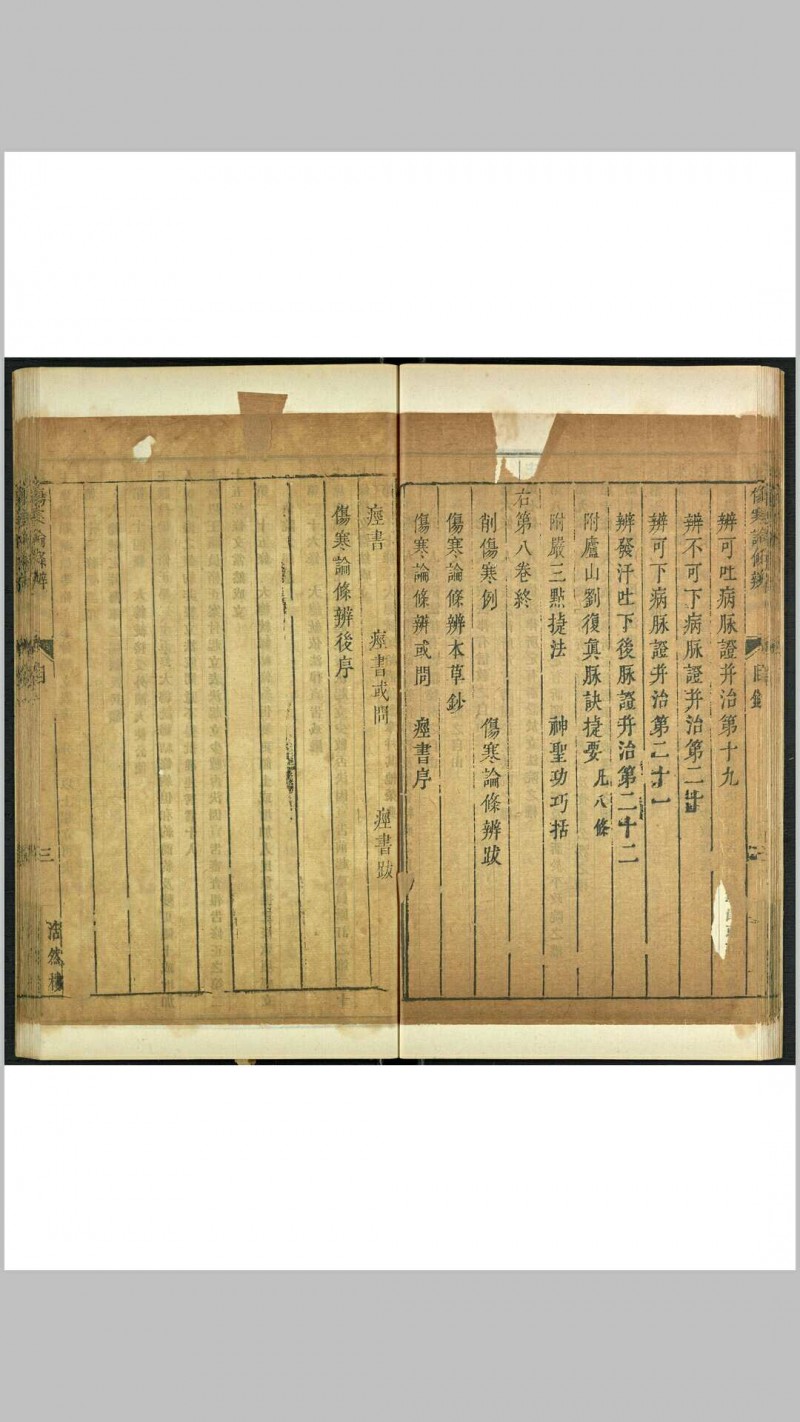 傷寒論條辨 目錄
辨可吐病脉證并治第十九
辨不可下病脉證并治第二十
辨可下病脉證并治第二十一
辨發汗吐下後脉證并治第二十二
附廬山劉復真脉訣捷要 凡八條
附嚴三點捷法 神聖功巧括
右第八卷終
削傷寒例 傷寒論條辨跋
傷寒論條辨本草鈔
傷寒論條辨或問 痙書序
痙書 痙書或問 痙書跋
傷寒論條辨後序
傷寒論條辨 三 浩然樓